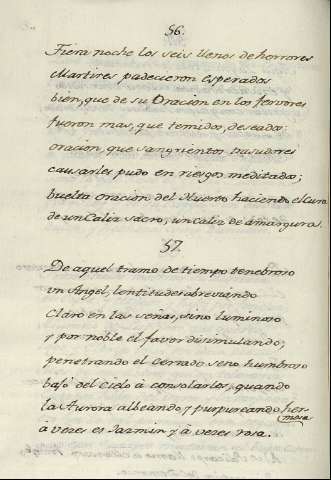 56.
Fiera noche los seis llenos de horrores
Martires padecieron esperados
bien, que de su Oracion en los fervores
fueron mas, que temidos, deseados:
oracion, que sangrientos trasudores
causarles pudo en riesgos meditados;
buelta oracion del Huerto haciendo el cura
de un Caliz sacro, un caliz de amargura.
57.
De aquel tramo de tiempo tenebroso
un Angel, lentitudes abreviando
Claro en las señas, sino luminoso
y por noble el favor disimulando;
penetrando el cerrado seno humbroso
bajó del Cielo à consolarlos, quando
la Aurora albeando, y purpureando hermosa
à veces es Jazmin y à veces rosa.